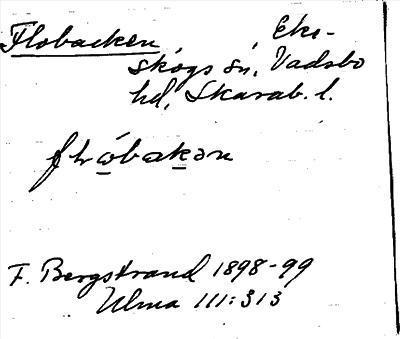 Flobacken, Eke-
skogs sn, Vadsbo
hd, Skarab. l.
flώbakən
F. Bergstrand 1898-99
Ulma 111:313